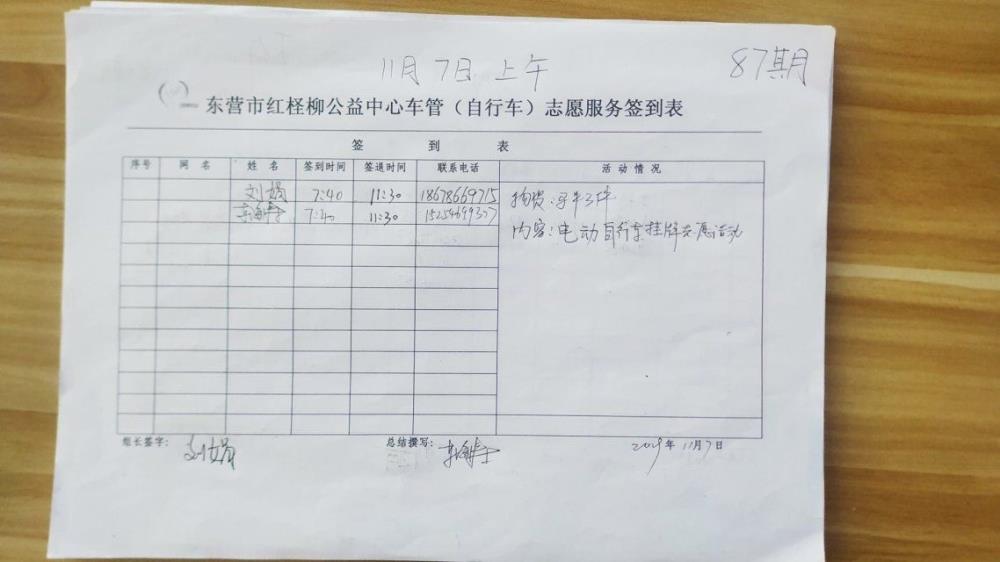 11月7日 上午
87期
东营市红柽柳公益中心车管（自行车）志愿服务签到表
签 到 表
序号 网 名 姓 名 签到时间 签退时间 联系电话 活动情况
刘娟 7:40 11:30 18678669715
7:40 11:30
物资:
内容:电动自行车挂牌志愿活动
组长签字: 刘娟 总结撰写: 2019年11月7日